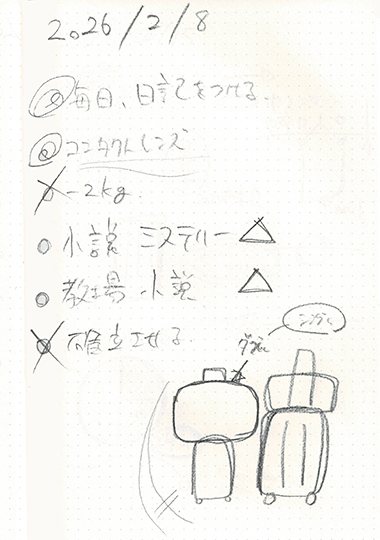 2026/2/8
◎ 毎日、日記をつける。
◎ コンタクトレンズ
× -2kg.
● 小説 ミステリー △
● 教場 小説 △
× 確立させる。